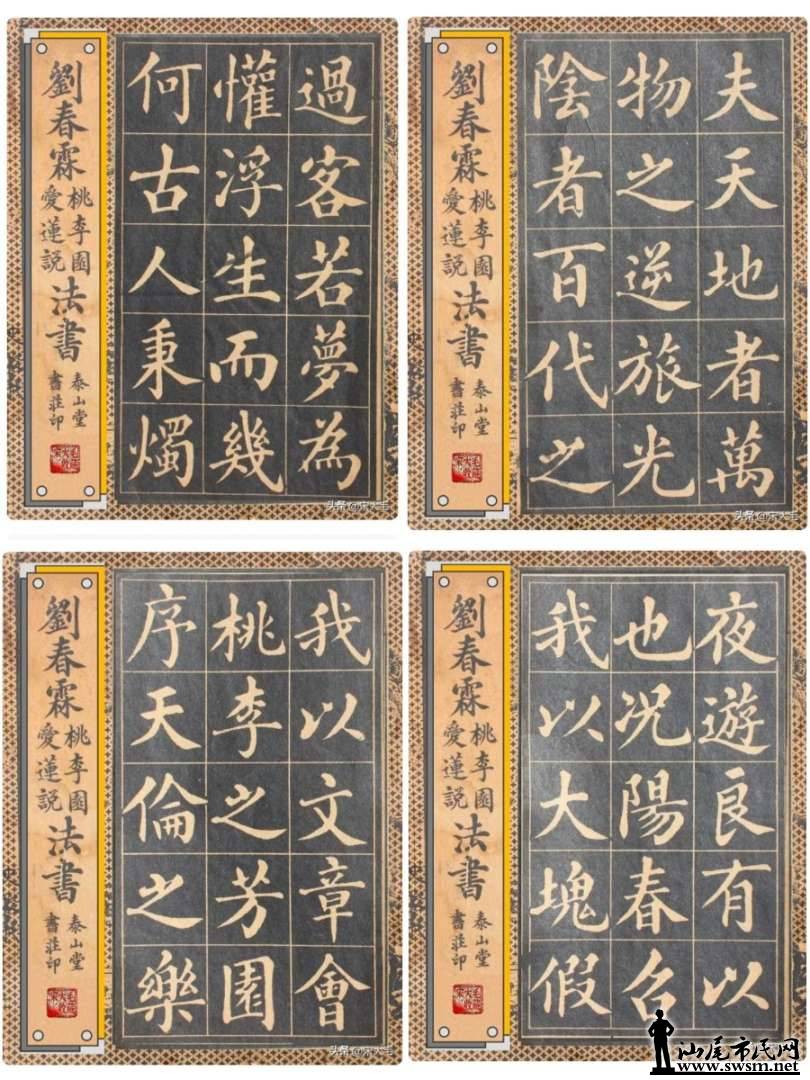 夫天地者萬
物之逆旅光
陰者百代之
劉春霖
桃李園
愛蓮説
法書
泰山堂
書莊印
头条
過客若夢為
懽浮生而幾
何古人秉燭
劉春霖
桃李園
愛蓮説
法書
泰山堂
書莊印
头条
夜遊良有以
也况陽春召
我以大塊假
劉春霖
桃李園
愛蓮説
法書
泰山堂
書莊印
我以文章會
桃李之芳園
序天倫之樂
劉春霖
桃李園
愛蓮説
法書
泰山堂
書莊印
头条
汕尾市民网
www.swsm.net